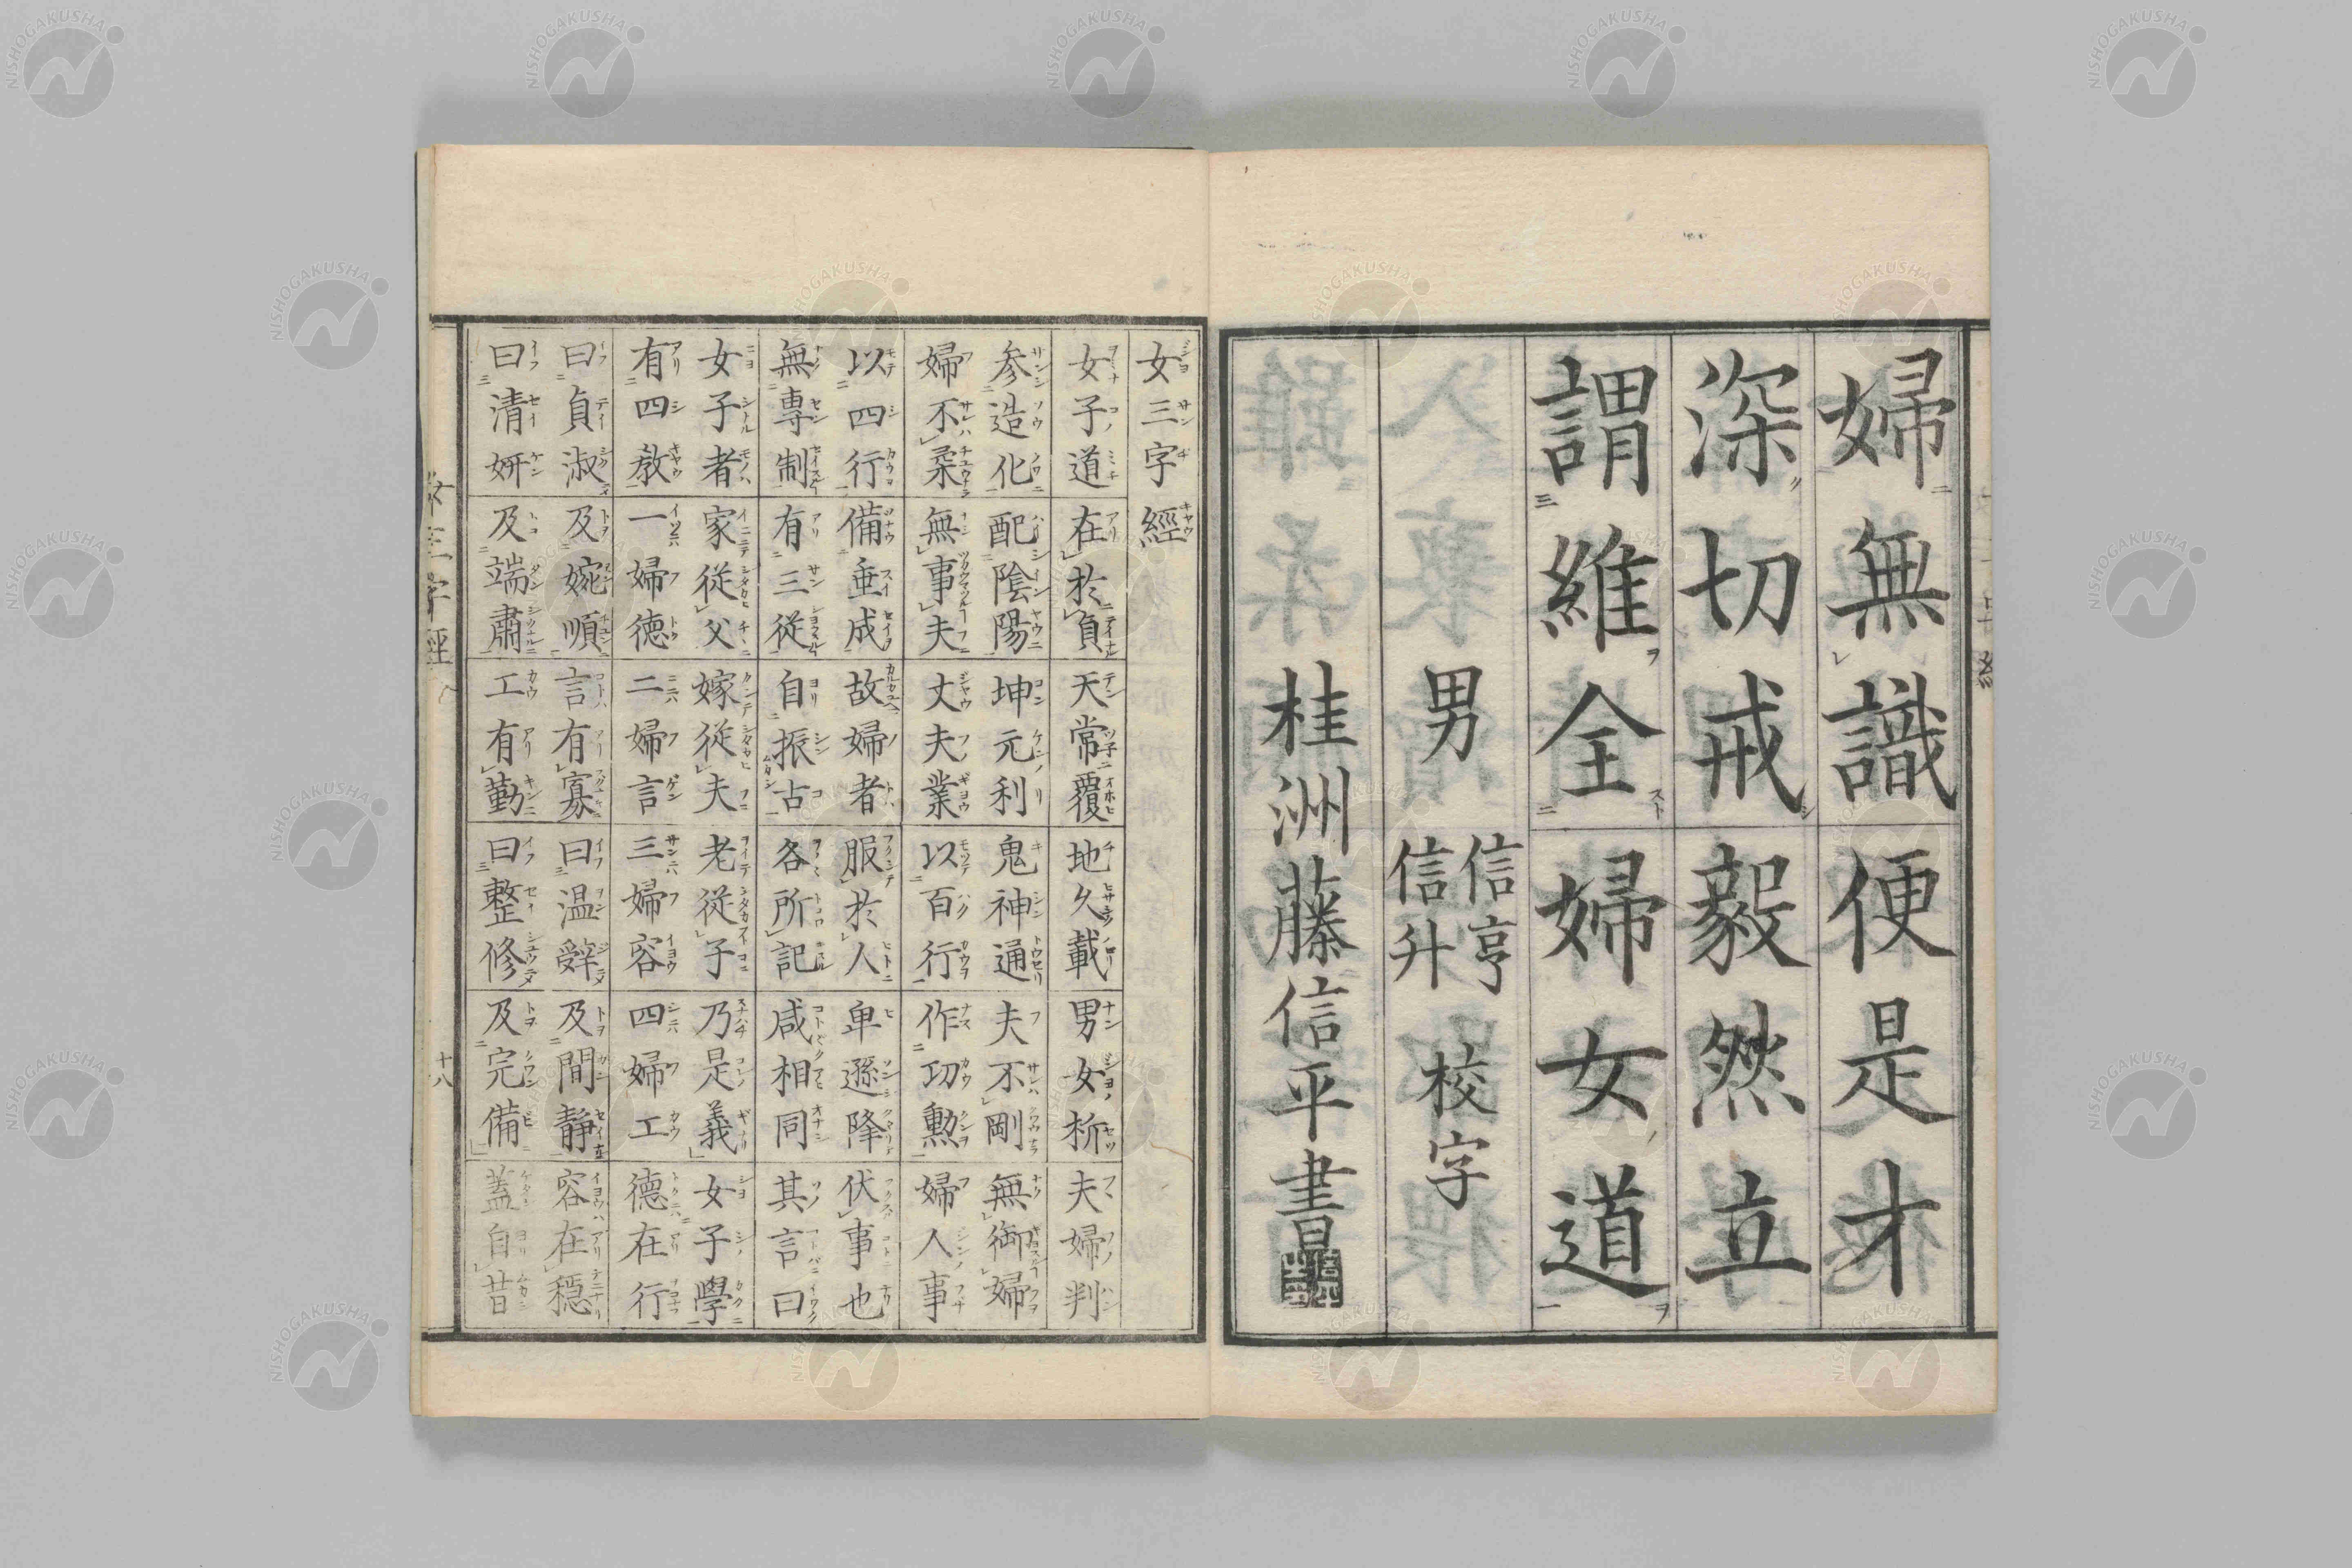 婦無識便是才
深切戒毅然立
謂維全婦女道
男 信亨 信升 校字
桂洲藤信平書
女三字經
女子道在於貞天常覆地久載男女析夫婦判
参造化配陰陽坤元利鬼神通夫不剛無御婦
婦不柔無事夫丈夫業以百行作功勲婦人事
以四行備垂成故婦者服於人卑遜降伏事也
無専制有三従自振古各所記咸相同其言曰
女子者家従父嫁従夫老従子乃是義女子學
有四教一婦徳二婦言三婦容四婦工德在行
曰貞淑及婉順言有寡曰温辭及間靜容在穏
曰清妍及端肅工有勤曰整修及完備蓋自昔
女三字經
十八
NISHOGAKUSHA